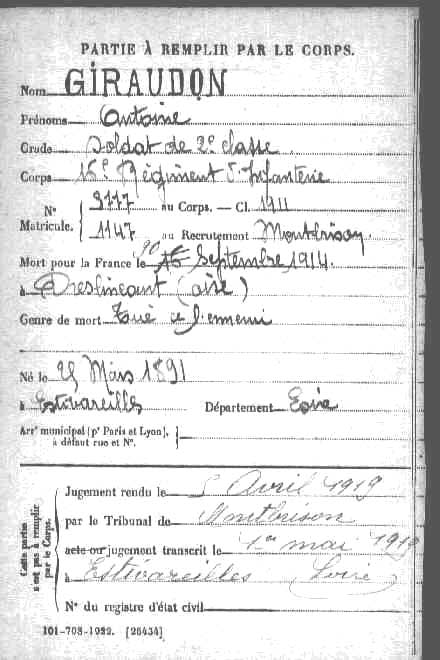 PARTIE À REMPLIR PAR LE CORPS.
Nom GIRAUDON
Prénoms Antoine
Grade Soldat de 2e classe
Corps 16e Régiment d'Infanterie
N° Matricule. { 9777 au Corps. — Cl. 1911
1147 au Recrutement Montbrison
Mort pour la France le 20 Septembre 1914.
à Dreslincourt (oise)
Genre de mort Tué à l'ennemi
Né le Mars 1891
à Estivareilles Département Loire
Arrt municipal (pr Paris et Lyon), à défaut rue et N°.
Cette partie n'est pas à remplir par le Corps.
Jugement rendu le 5 Avril 1919
par le Tribunal de Montbrison
acte ou jugement transcrit le 1er mai 1919
à Estivareilles (Loire)
N° du registre d'état civil
101-708-1922. [26434]